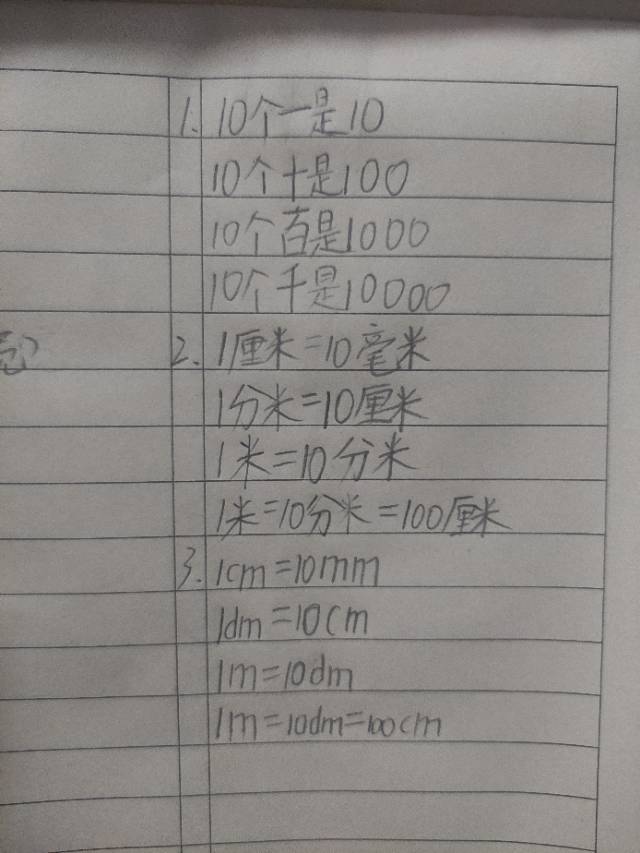 1. 10个一是10
10个十是100
10个百是1000
10个千是10000
2. 1厘米=10毫米
1分米=10厘米
1米=10分米
1米=10分米=100厘米
3. 1cm=10mm
1dm=10cm
1m=10dm
1m=10dm=100cm